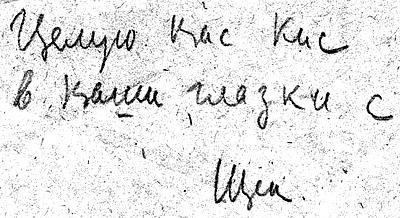 Целую вас Кис
в ваши глазки с
Щен